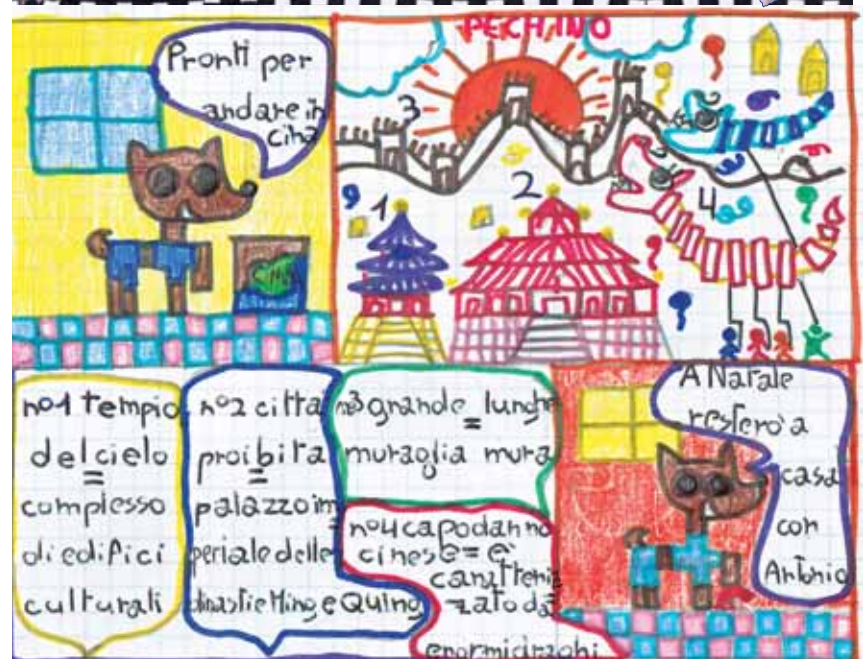 Pronti per
andare in
cina
PECHINO
3
1
2
4
no1 tempio
del cielo
complesso
di edifici
culturali
no2 citta
proibita
palazzo im
periale delle
dinastie Ming e Quing
no3 grande = lunghe
muraglia mura
no4 capodanno
cinese = è
caratteriz
zato da
enormi draghi
A Natale
resterò a
casa
con
Antonio